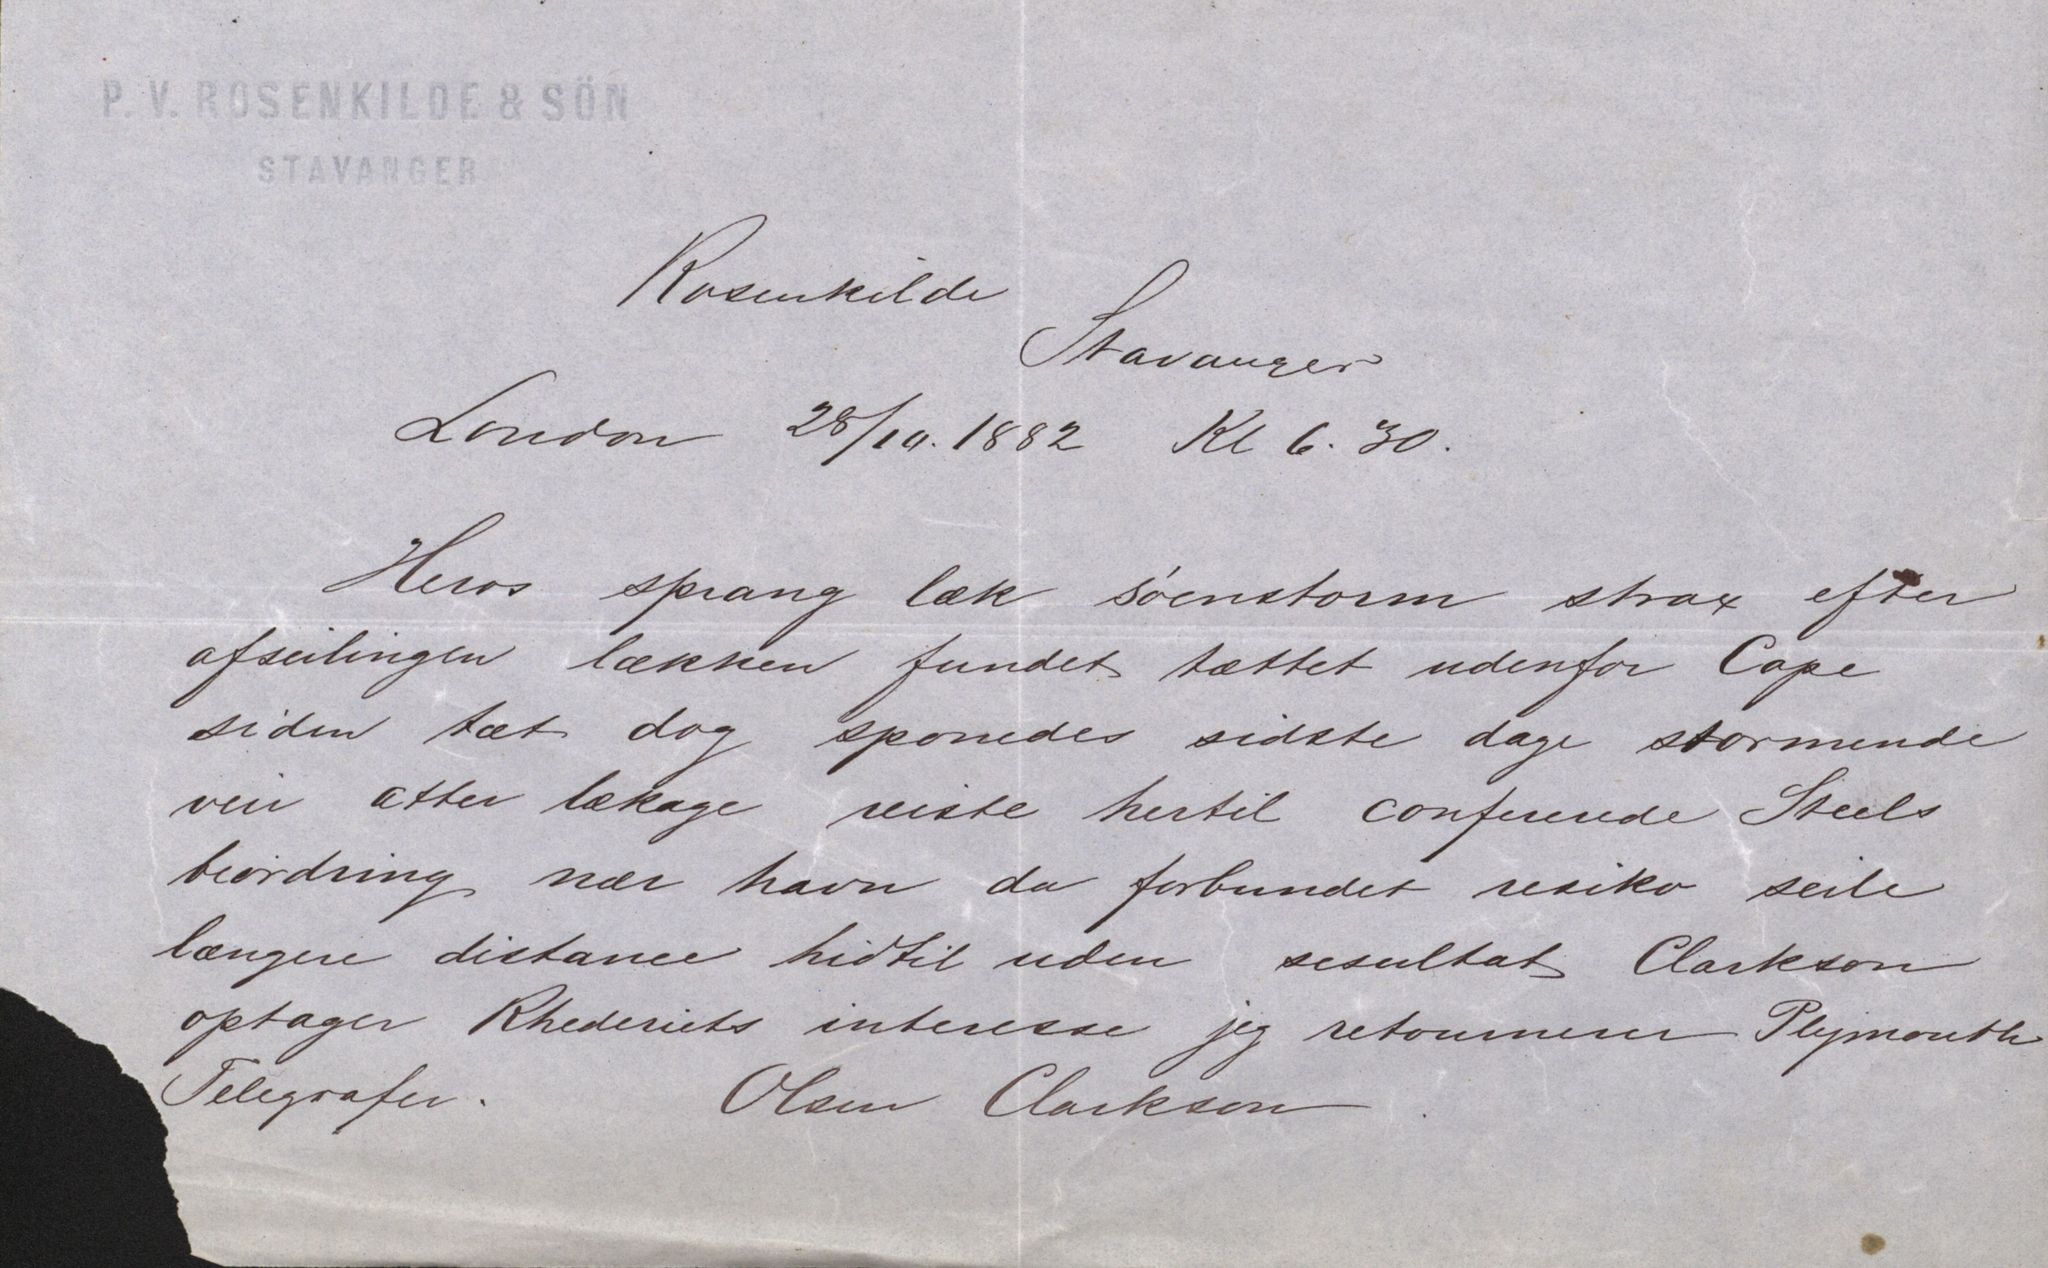 P. V. ROSENKILDE & SÖN
STAVANGER
Rosenkilde
Stavanger
London 28/10. 1882 Kl 6. 30.
Heros sprang læk søenstorm strax efter
afseilingen lækken fundet tættet udenfor Cape
siden tæt dog sporedes sidste dage stormende
veir atter lækage reiste hertil confererede Steels
beordring nær havn da forbundet resiko seile
længere distance hidtil uden resultat Clarkson
optager Rhederiets interesse jeg retournerer Plymouth
Telegrafer. Olsen Clarkson